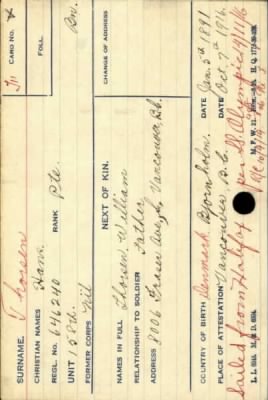 SURNAME. Thorsen CARD NO.
CHRISTIAN NAMES Hans. FOLL.
REGL. NO. 646240 RANK Pte.
UNIT 158th. Bn.
FORMER CORPS Nil
NEXT OF KIN. CHANGE OF ADDRESS
NAMES IN FULL Thorsen, William
RELATIONSHIP TO SOLDIER Father
ADDRESS 8006 Fraser Ave., Vancouver, B.C.
COUNTRY OF BIRTH Denmark Bjornholm. DATE Jan. 5th 1891
PLACE OF ATTESTATION Vancouver, B.C. DATE Oct. 7th 1916.
Sailed from Halifax per SS Olympic